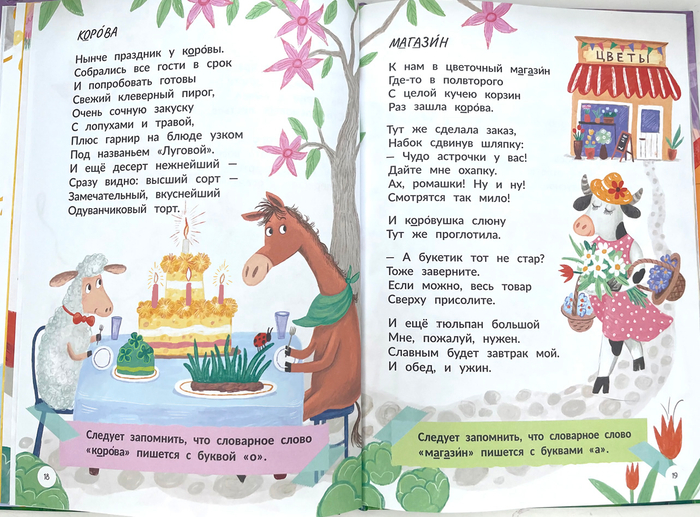 КОРО́ВА
Нынче праздник у коро́вы.
Собрались все гости в срок
И попробовать готовы
Свежий клеверный пирог,
Очень сочную закуску
С лопухами и травой,
Плюс гарнир на блюде узком
Под названьем «Луговой».
И ещё десерт нежнейший —
Сразу видно: высший сорт —
Замечательный, вкуснейший
Одуванчиковый торт.
Следует запомнить, что словарное слово
«коро́ва» пишется с буквой «о».
18
МАГАЗИ́Н
ЦВЕТЫ
К нам в цветочный магази́н
Где-то в полвторого
С целой кучею корзин
Раз зашла коро́ва.
Тут же сделала заказ,
Набок сдвинув шляпку:
— Чудо астрочки у вас!
Дайте мне охапку.
Ах, ромашки! Ну и ну!
Смотрятся так мило!
И коро́вушка слюну
Тут же проглотила.
— А букетик тот не стар?
Тоже заверните.
Если можно, весь товар
Сверху присолите.
И ещё тюльпан большой
Мне, пожалуй, нужен.
Славным будет завтрак мой.
И обед, и ужин.
Следует запомнить, что словарное слово
«магази́н» пишется с буквами «а».
19